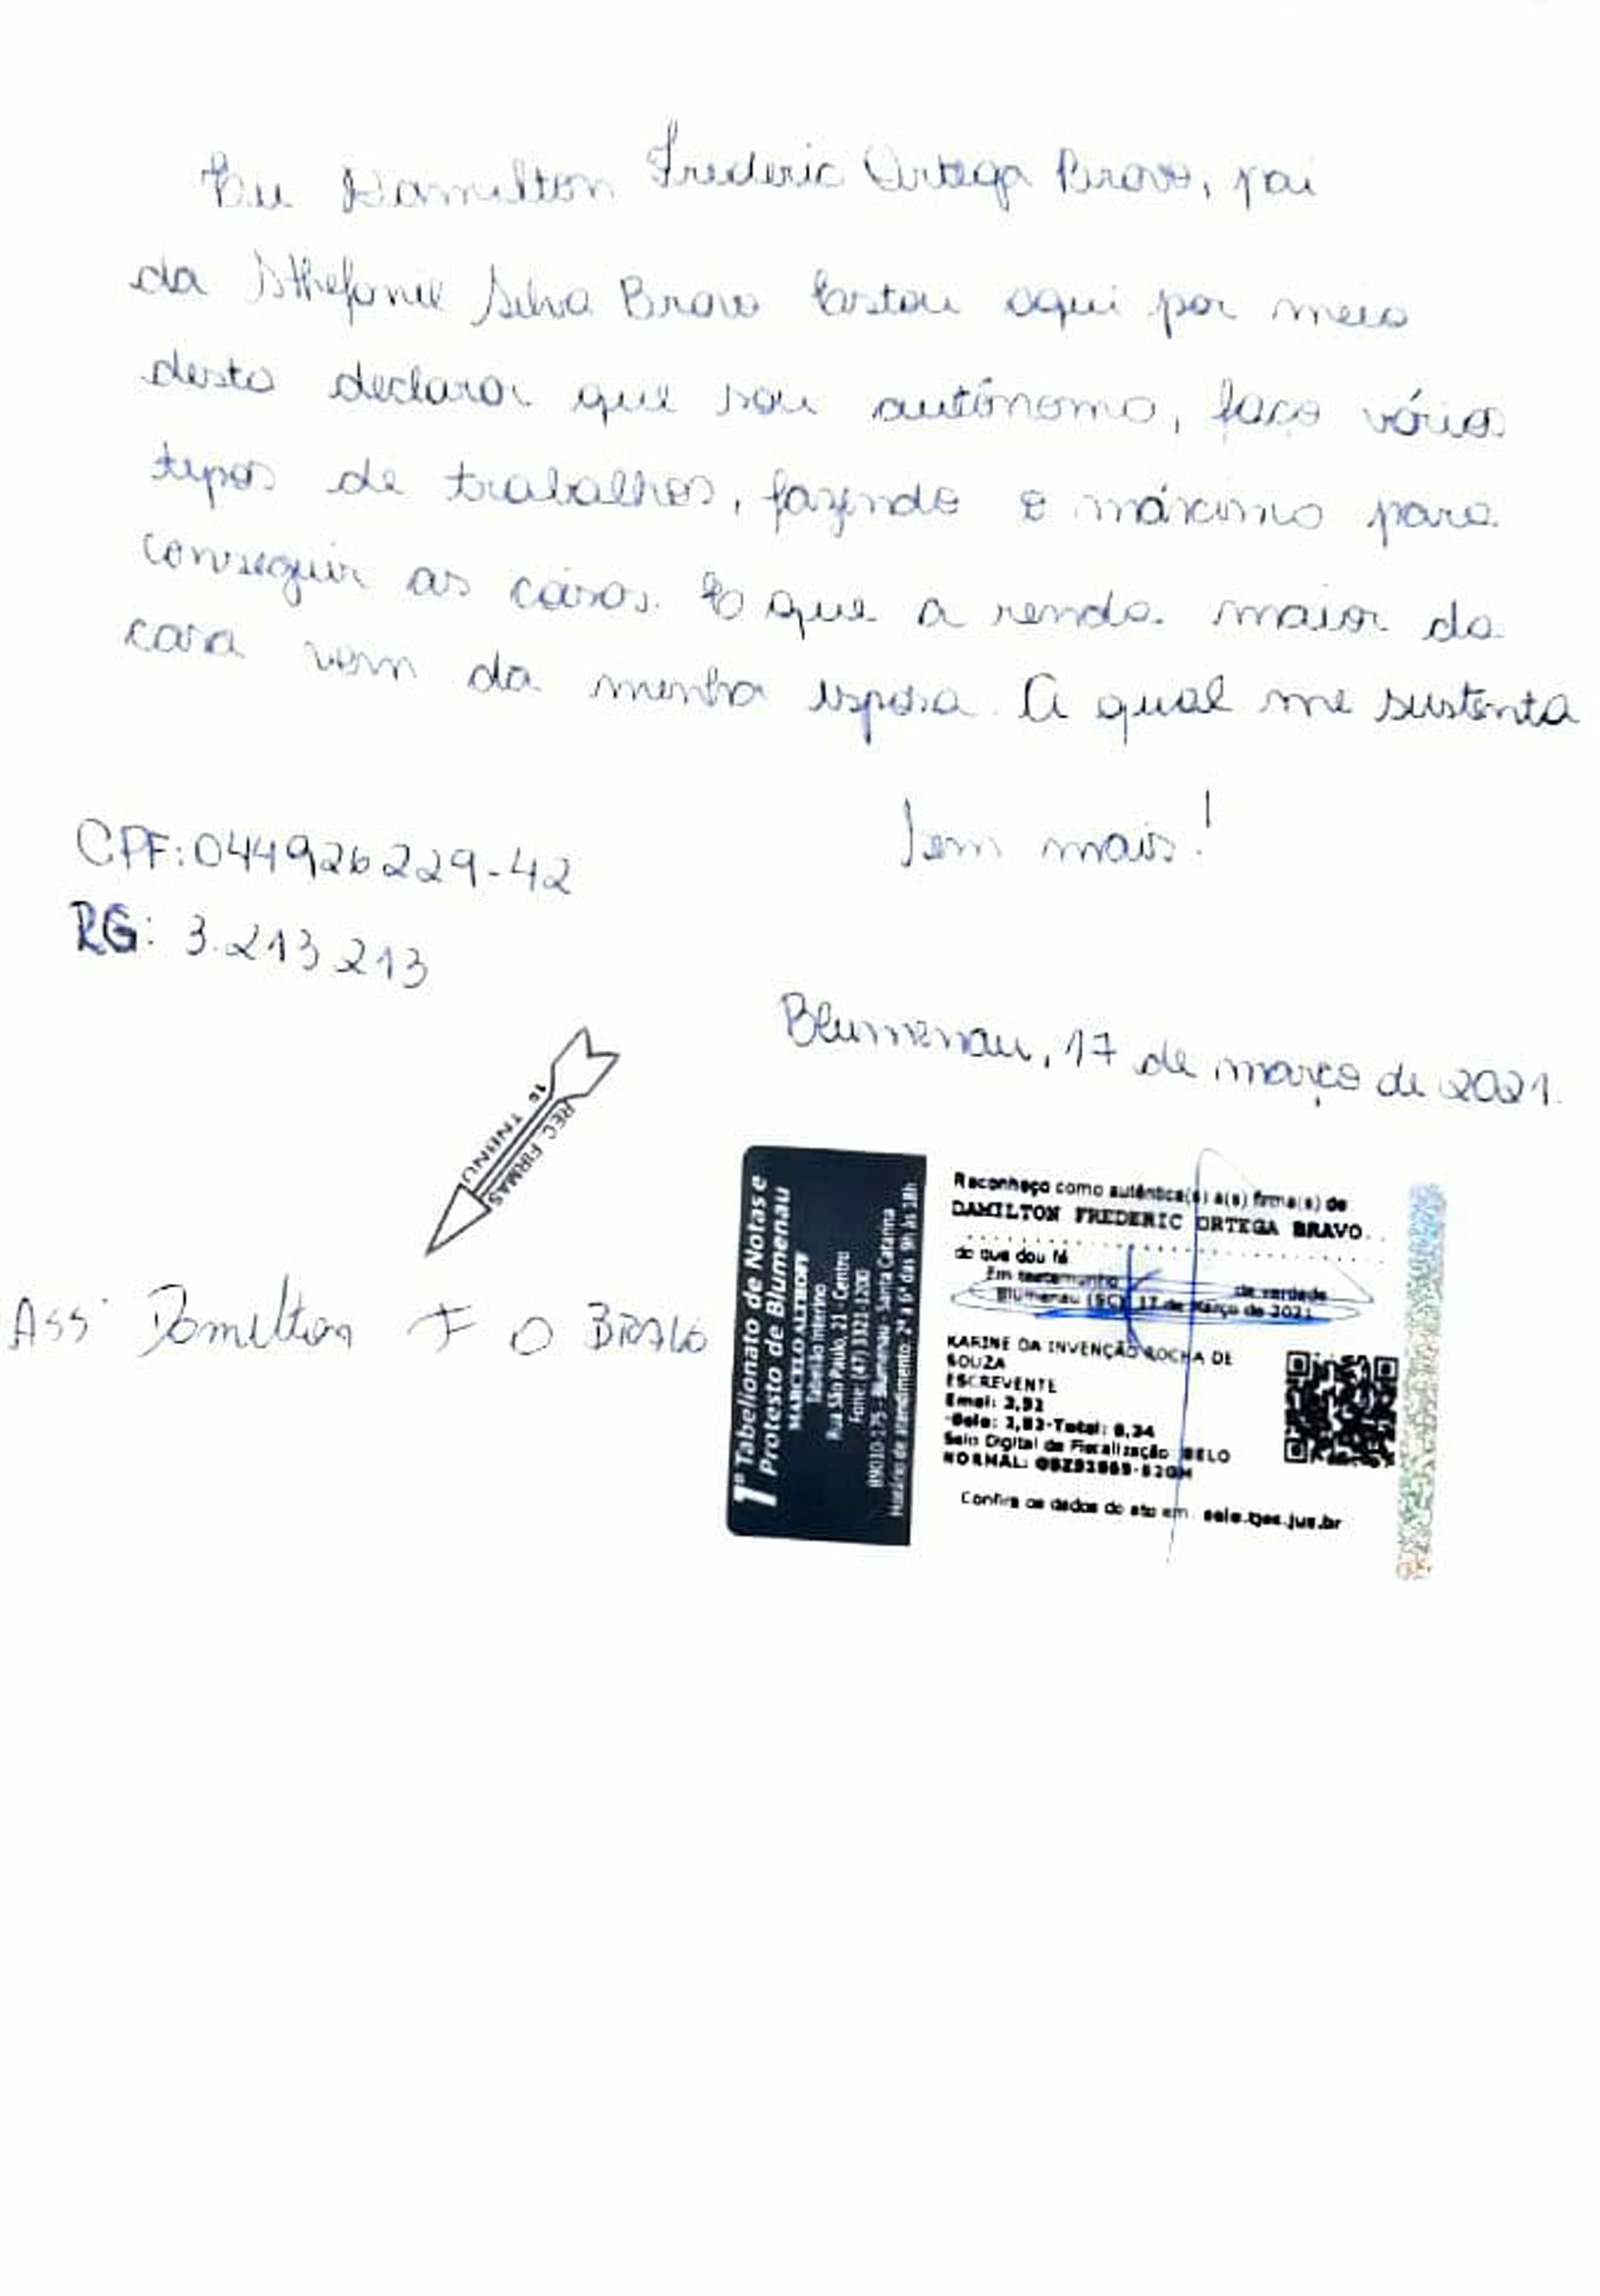 Eu Damilton Frederic Ortega Bravo, pai
da Sthefanie Silva Bravo Estou aqui por meio
desta declarar que sou autônomo, faço vários
tipos de trabalhos, fazendo o máximo para
conseguir as coisas. E que a renda maior da
casa vem da minha esposa. A qual me sustenta
Sem mais!
CPF: 044926229-42
RG: 3.213 213
Blumenau, 17 de março de 2021.
REC. FIRMAS
1º TNBNU
Ass: Damilton F O BRAVO
1º Tabelionato de Notas e
Protesto de Blumenau
MARCELO ALTHOFF
Tabelião Interino
Rua São Paulo, 21 - Centro
Fone: (47) 3321-1200
89010-175 - Blumenau - Santa Catarina
Horário de atendimento: 2ª a 6ª das 9h às 18h
Reconheço como autêntica(s) a(s) firma(s) de
DAMILTON FREDERIC ORTEGA BRAVO
do que dou fé
Em testemunho da verdade
Blumenau (SC), 17 de Março de 2021
KARINE DA INVENÇÃO ROCHA DE
SOUZA
ESCREVENTE
Emol:
Selo: Total:
Selo Digital de Fiscalização SELO
NORMAL:
Confira os dados do ato em: selo.tjsc.jus.br